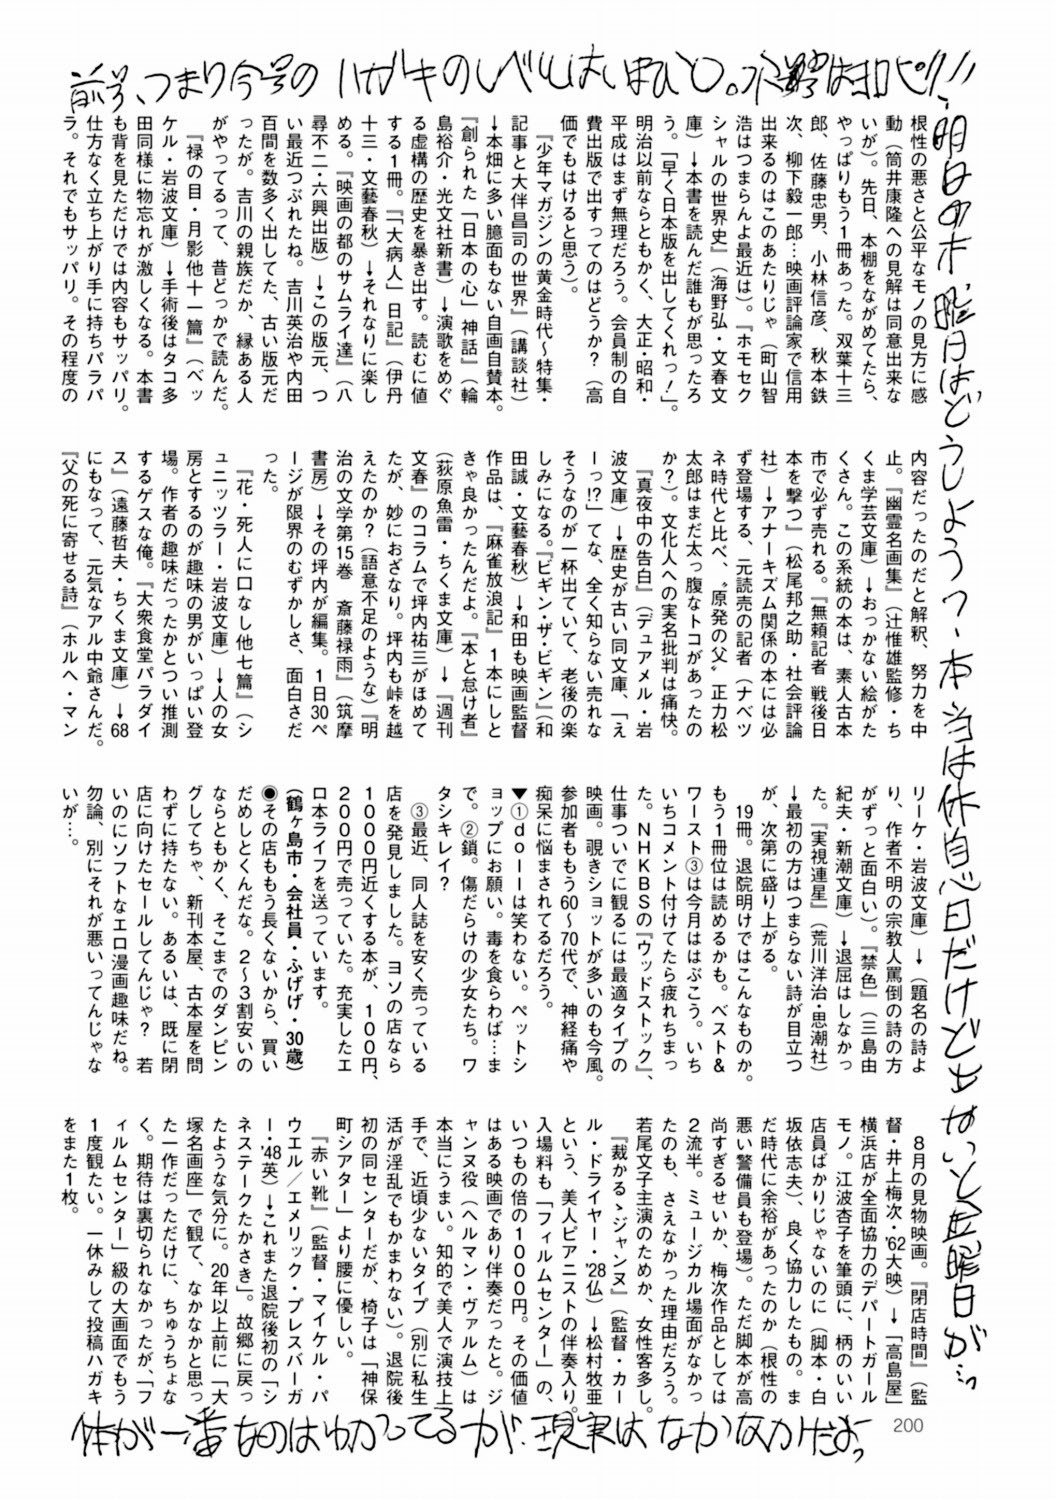 前号、つまり今号のハガキのレベルはいまひと。水野はヨロピク!!
明日の木曜日はどうしよう?本当は休息日だけど出ないと金曜日が…
根性の悪さと公平なモノの見方に感
動（筒井康隆への見解は同意出来な
いが）。先日、本棚をながめてたら、
やっぱりもう1冊あった。双葉十三
郎、佐藤忠男、小林信彦、秋本鉄
次、柳下毅一郎…映画評論家で信用
出来るのはこのあたりじゃ（町山智
浩はつまらんよ最近は）。『ホモセク
シャルの世界史』（海野弘・文春文
庫）→本書を読んだ誰もが思ったろ
う。「早く日本版を出してくれっ！」。
明治以前ならともかく、大正・昭和・
平成はまず無理だろう。会員制の自
費出版で出すってのはどうか？（高
価でもはけると思う）。
『少年マガジンの黄金時代〜特集・
記事と大伴昌司の世界』（講談社）
→本畑に多い臆面もない自画自賛本。
『創られた「日本の心」神話』（輪
島裕介・光文社新書）→演歌をめぐ
る虚構の歴史を暴き出す。読むに値
する1冊。『「大病人」日記』（伊丹
十三・文藝春秋）→それなりに楽し
める。『映画の都のサムライ達』（八
尋不二・六興出版）→この版元、つ
い最近つぶれたね。吉川英治や内田
百間を数多く出してた、古い版元だ
ったが。吉川の親族だか、縁ある人
がやってるって、昔どっかで読んだ。
『禄の目・月影他十一篇』（ベッ
ケル・岩波文庫）→手術後はタコ多
田同様に物忘れが激しくなる。本書
も背を見ただけでは内容もサッパリ。
仕方なく立ち上がり手に持ちパラパ
ラ。それでもサッパリ。その程度の
内容だったのだと解釈、努力を中
止。『幽霊名画集』（辻惟雄監修・ち
くま学芸文庫）→おっかない絵がた
くさん。この系統の本は、素人古本
市で必ず売れる。『無頼記者 戦後日
本を撃つ』（松尾邦之助・社会評論
社）→アナーキズム関係の本には必
ず登場する、元読売の記者（ナベツ
ネ時代と比べ、〝原発の父〟正力松
太郎はまだ太っ腹なトコがあったの
か？）。文化人への実名批判は痛快。
『真夜中の告白』（デュアメル・岩
波文庫）→歴史が古い同文庫、「え
ーっ!?」てな、全く知らない売れな
そうなのが一杯出ていて、老後の楽
しみになる。『ビギン・ザ・ビギン』（和
田誠・文藝春秋）→和田も映画監督
作品は、『麻雀放浪記』1本にしと
きゃ良かったんだよ。『本と怠け者』
（荻原魚雷・ちくま文庫）→『週刊
文春』のコラムで坪内祐三がほめて
たが、妙におざなり。坪内も峠を越
えたのか？（語意不足のような）『明
治の文学第15巻 斎藤禄雨』（筑摩
書房）→その坪内が編集。1日30ペ
ージが限界のむずかしさ、面白さだ
った。
『花・死人に口なし他七篇』（シ
ュニッツラー・岩波文庫）→人の女
房とするのが趣味の男がいっぱい登
場。作者の趣味だったかとつい推測
するゲスな俺。『大衆食堂パラダイ
ス』（遠藤哲夫・ちくま文庫）→68
にもなって、元気なアル中爺さんだ。
『父の死に寄せる詩』（ホルヘ・マン
リーケ・岩波文庫）→（題名の詩よ
り、作者不明の宗教人罵倒の詩の方
がずっと面白い）。『禁色』（三島由
紀夫・新潮文庫）→退屈はしなかっ
た。『実視連星』（荒川洋治・思潮社）
→最初の方はつまらない詩が目立つ
が、次第に盛り上がる。
19冊。退院明けではこんなものか。
もう1冊位は読めるかも。ベスト&
ワースト③は今月ははぶこう。いち
いちコメント付けてたら疲れちまっ
た。ＮＨＫＢＳの『ウッドストック』、
仕事ついでに観るには最適タイプの
映画。覗きショットが多いのも今風。
参加者ももう60〜70代で、神経痛や
痴呆に悩まされてるだろう。
▼①dollは笑わない。ペットシ
ョップにお願い。毒を食らわば…ま
で。②鎖。傷だらけの少女たち。ワ
タシキレイ？
③最近、同人誌を安く売っている
店を発見しました。ヨソの店なら
1000円近くする本が、100円、
200円で売っていた。充実したエ
ロ本ライフを送っています。
（鶴ヶ島市・会社員・ふげげ・30歳）
◉その店ももう長くないから、買い
だめしとくんだな。2〜3割安いの
ならともかく、そこまでのダンピン
グしてちゃ、新刊本屋、古本屋を問
わずに持たない。あるいは、既に閉
店に向けたセールしてんじゃ？ 若
いのにソフトなエロ漫画趣味だね。
勿論、別にそれが悪いってんじゃな
いが…。
8月の見物映画。『閉店時間』（監
督・井上梅次・'62大映）→「高島屋」
横浜店が全面協力のデパートガール
モノ。江波杏子を筆頭に、柄のいい
店員ばかりじゃないのに（脚本・白
坂依志夫）、良く協力したもの。ま
だ時代に余裕があったのか（根性の
悪い警備員も登場）。ただ脚本が高
尚すぎるせいか、梅次作品としては
2流半。ミュージカル場面がなかっ
たのも、さえなかった理由だろう。
若尾文子主演のためか、女性客多し。
『裁かるゝジャンヌ』（監督・カー
ル・ドライヤー・'28仏）→松村牧亜
という、美人ピアニストの伴奏入り。
入場料も「フィルムセンター」の、
いつもの倍の1000円。その価値
はある映画であり伴奏だったと。ジ
ャンヌ役（ヘルマン・ヴァルム）は
本当にうまい。知的で美人で演技上
手で、近頃少ないタイプ（別に私生
活が淫乱でもかまわない）。退院後
初の同センターだが、椅子は「神保
町シアター」より腰に優しい。
『赤い靴』（監督・マイケル・パ
ウエル／エメリック・プレスバーガ
ー・'48英）→これまた退院後初の「シ
ネステークたかさき」。故郷に戻っ
たような気分に。20年以上前に「大
塚名画座」で観て、なかなかと思っ
た一作だっただけに、ちゅうちょな
く。期待は裏切られなかったが、「フ
ィルムセンター」級の大画面でもう
1度観たい。一休みして投稿ハガキ
をまた1枚。
体が一番なのはわかってるが、現実はなかなかだよっ
200